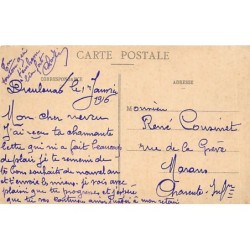 CARTE POSTALE
CORRESPONDANCE
ADRESSE
Dieulouard le 1er Janvier
1916
Mon cher neveu
J'ai reçu ta charmante
lettre qui m'a fait beaucoup
de plaisir je te remercie de
tes bons souhaits de nouvel an
et t'envoie les miens je vois avec
plaisir que tu progresses et j'espère
que tu vas continuer ainsi jusqu'à mon retour
Monsieur
René Cousinet
rue de la Grève
Marans
Charente-Infre